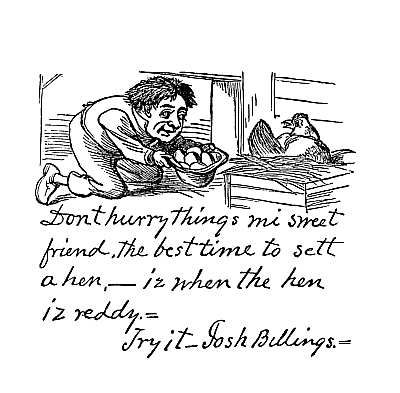 Dont hurry things mi sweet
friend, the best time to sett
a hen, — iz when the hen
iz reddy.=
Try it — Josh Billings.=